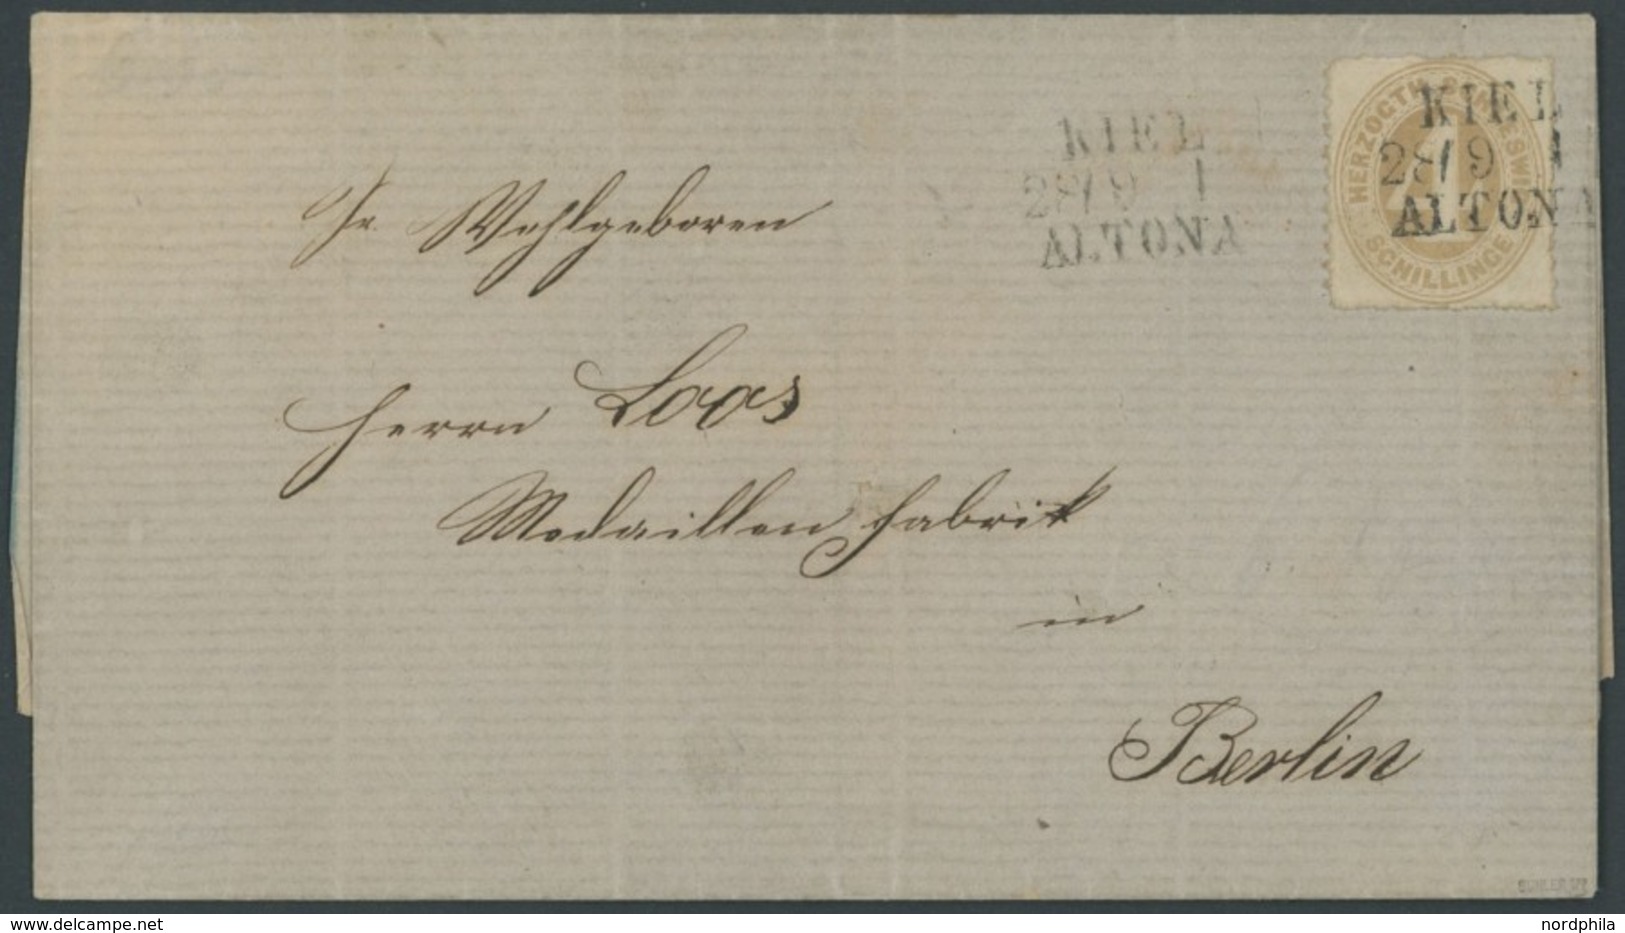 KIEL
28/9 I
ALTONA
HERZOGTH. SCHLESWIG
4
SCHILLINGE
KIEL
28/9 I
ALTONA
Sr. Wohlgeboren
Herrn Loos
Medaillen fabrik
in
Berlin
delcampe.net
nordphila